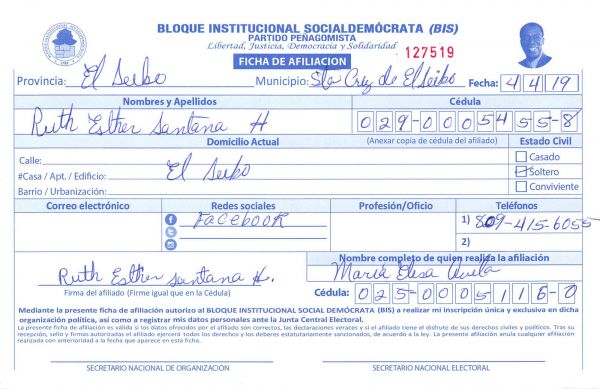 BLOQUE INSTITUCIONAL SOCIALDEMÓCRATA (BIS)
PARTIDO PEÑAGOMISTA
Libertad, Justicia, Democracia y Solidaridad
127519
FICHA DE AFILIACION
Provincia: El Seibo Municipio: Sta Cruz de El Seibo Fecha: 4/4/19
Nombres y Apellidos Cédula
Ruth Esther Santana H 029-0005455-8
Domicilio Actual (Anexar copia de cédula del afiliado) Estado Civil
Calle: Casado
#Casa / Apt. / Edificio: El Seibo Soltero
Barrio / Urbanización: Conviviente
Correo electrónico Redes sociales Profesión/Oficio Teléfonos
Facebook 1) 809-415-6055
2)
Nombre completo de quien realiza la afiliación
Ruth Esther Santana H. María Elisa Avila
Firma del afiliado (Firme igual que en la Cédula) Cédula: 025-0005116-0
Mediante la presente ficha de afiliación autorizo al BLOQUE INSTITUCIONAL SOCIAL DEMÓCRATA (BIS) a realizar mi inscripción única y exclusiva en dicha
organización política, así como a registrar mis datos personales ante la Junta Central Electoral.
La presente ficha de afiliación es válida si los datos ofrecidos por el afiliado son correctos, las declaraciones veraces y si el afiliado tiene el disfrute de sus derechos civiles y políticos. Tras su
recepción, sello y firmas autorizadas el afiliado ejercerá todos los derechos y los deberes estatutariamente sancionados, de acuerdo a la ley. La presente afiliación anula cualquier afiliación
realizada con anterioridad a la fecha que aparece en esta ficha.
SECRETARIO NACIONAL DE ORGANIZACIÓN SECRETARIO NACIONAL ELECTORAL